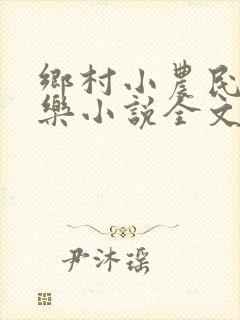 鄉村小農民
樂小說全文
尹沐瑶